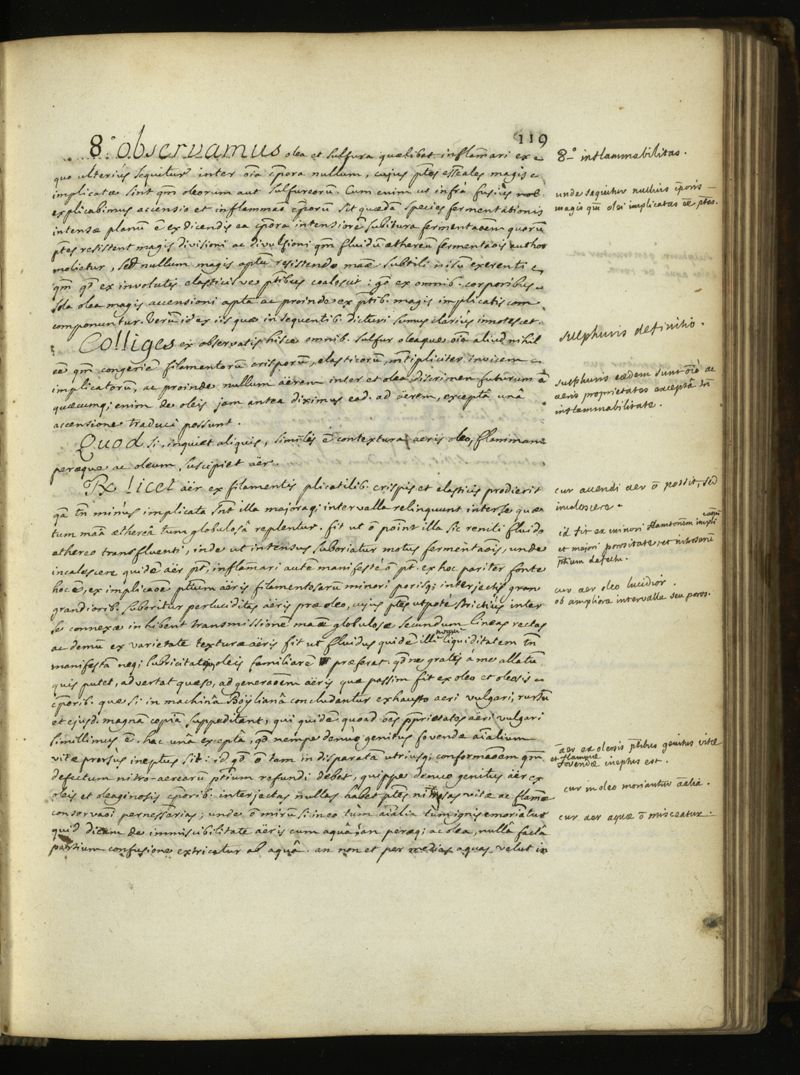 119
8.° observamus olea et sulfura quælibet inflam̄ari ex
quo ulterius sequitur inter oīa cp̄ora nullum, cujus ptēs eēales magis
implicatæ sint qm̄ oleorum aut sulfureorū. Cum enim ut infrà fusiùs
explicabimus accensio et inflammaō cp̄orum sit quædā species fermentationis
intensæ planū ē ex dicendis ea cp̄ora intensiorē subitura fermentaōem quorū
ptēs resistent magis divisioni ac divulsioni qm̄ fluidū æthereū fermentaōis author
molietur, sed nullum magis aptū resistendo maæ subtili nisū exerenti
qm̄ qd̄ ex involutis elasticisve ptibus coalescit: gō ex omnib. corporibus
sola olea magis accensioni apta ac proinde ex ptib. magis implicatis com
componuntur. Verū id ex iis quæ in sequentib. dicturi sumus clariùs innotescet.
Colliges ex observatis hisce omnib. sulfur oleaque oīa aliud nihil
eē qm̄ congeriē filamentorū crisporū, elasticorū, multipliciter invicem
implicatorū, ac proinde nullum aërem inter et olea discrimen futurum
quæcumq; enim de oleis jam antea diximus ead. ad aërem, exceptâ unâ
accensione traduci possunt.
Quod si, inquiet aliquis, similis ē contextura aeris oleo, flammam
peræque ac oleum suscipiet aër.
R. licet aër ex filamentis plicatilib. crispis et elasticis prodierit
qā tn̄ minùs implicata sunt illa majoraq; intervalla relinquunt inter se quæ
tum maâ ethereâ tum globulosâ replentur. fit ut ō point illa sic reniti fluido
æthereo transfluenti, inde ut intensus suboriatur motus fermentaōis, unde
incalescere quidē aër pt, inflam̄ari autē manifestè ō pt. ex hoc pariter fonte
hoc ē, ex implicaōe ptium aëris filamentosarū minori porisq; interjectis gran
grandiorib. suboritur perluciditas aëris præ oleo, cujus ptēs utpotè strictiùs inter
se connexæ inhibent transmissionē maæ globulosæ secundum lineas rectas
ac demū ex varietate texturæ aëris fit ut fluidus quidē illi liquiditatem tn̄
manifestā neq; lubricitatē oleis familiarē præferat. qd̄ ne gratis à me allatū
quis putet, advertat quæso, ad generaōem aëris quæ passim fit ex oleo et oleosis
cp̄orib. quæ si in machinâ Böÿlianâ concludantur exhausto aeri vulgari, rursū
et ejusd. magnā copiā suppeditant, qui quidē quoad oēs pprietates aëri vulgari
simillimus ē. hac unâ exceptâ, qd̄ nempe denuo genitus fovendæ aīalium
vitæ prorsùs ineptus sit: id qd̄ ō tam in disparatā utriusq; conformaōem qm̄
defectum nitro-aerearū ptium refundi debet, quippe denuo genitus aër ex
oleis et oleaginosis cp̄orib. interjectas nullas habet ptēs nitrosas vitæ ac flammæ
conservaōi pernecessarias; unde ō mirū si in eo tùm aīalia tùm ignis emoriatur
quid dicam de immiscibilitate aëris cum aquâ jan peræq; ac olea, nullâ factâ
partium confusione extricatur ab aquâ. an non et per medias aquas velut in
8.° inflammabilitas.
unde sequitur nullius cp̄oris
magis qm̄ olei implicatas eē ptes.
sulphuris definitio.
sulphuris eædem sunt oīo ac
aëris proprietates exceptâ tn̄
inflammabilitate.
cur accendi aer ō possit, sed
incalescere.
id fit ex minori filamentorum impli
caōne
et majori porositate, et nitrosarū
ptium defectu.
cur aer oleo lucidior.
ob ampliora intervalla seu poros.
aër ex oleosis ptibus genitus vitæ
et flammæ
fovendæ ineptus est.
cur in oleo moriantur aālia.
cur aer aquæ ō misceatur.